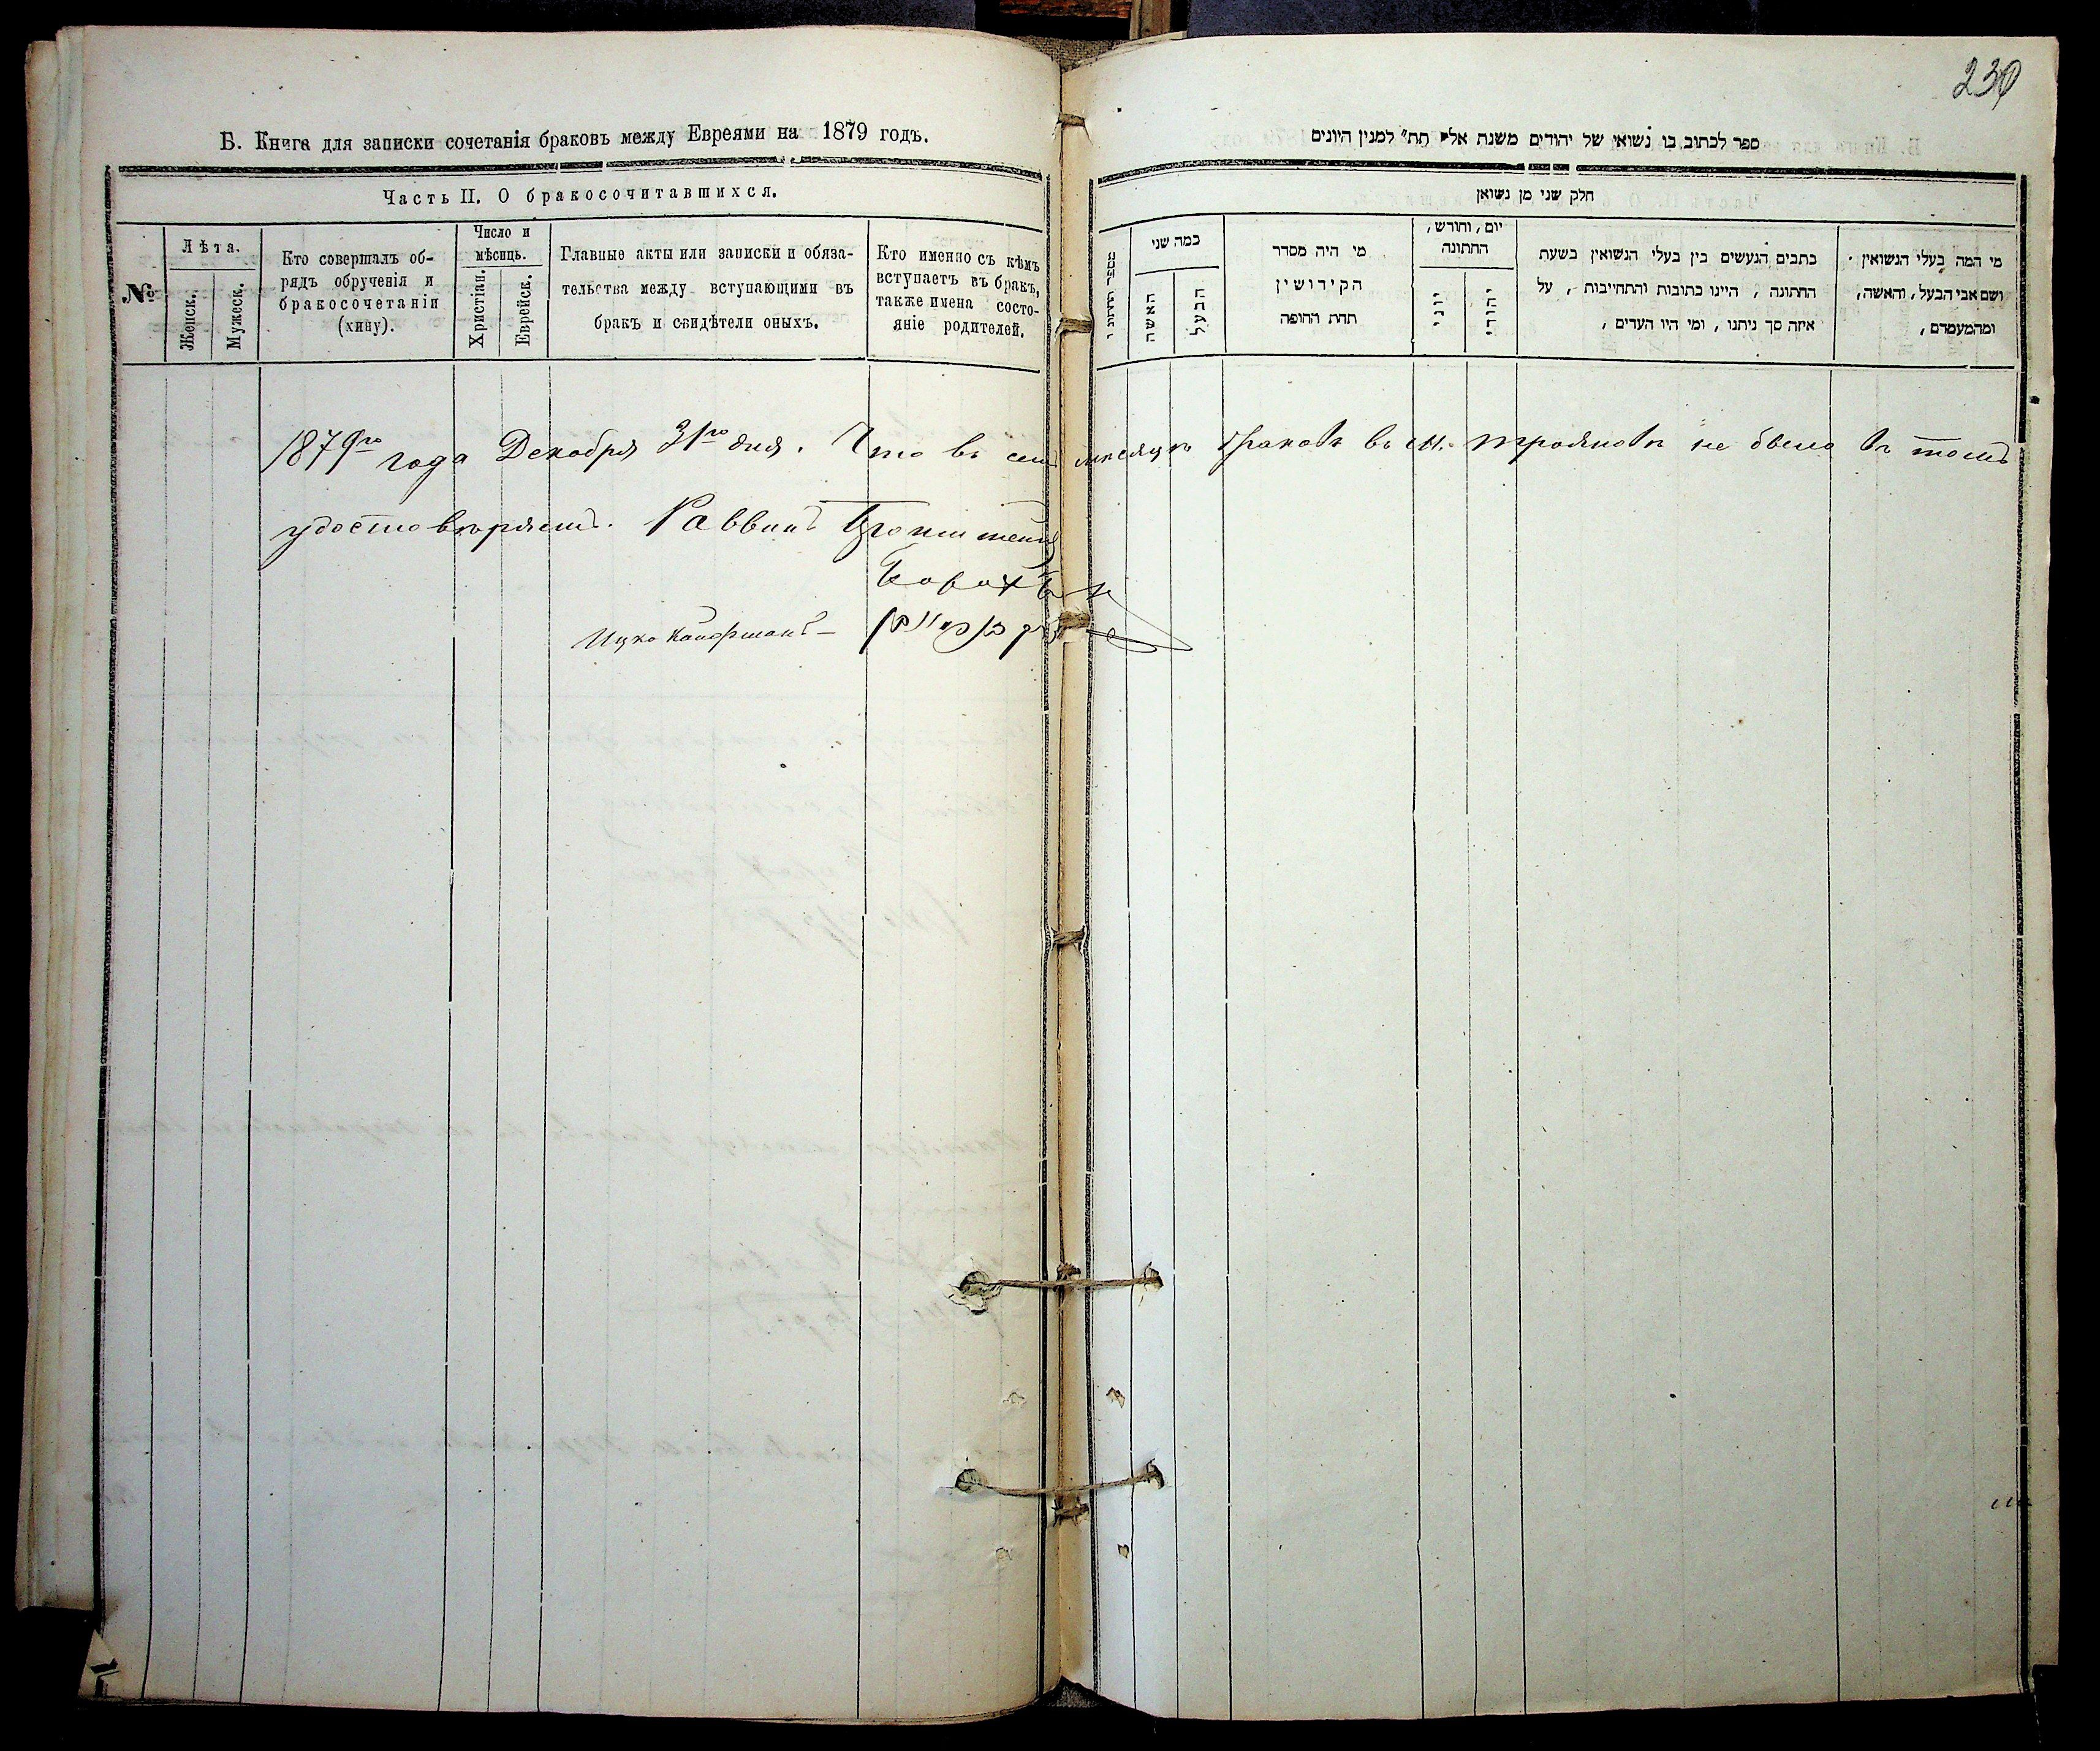 230
Б. Книга для записки сочетанія браковъ между Евреями на 1879 годъ.
Часть II. О бракосочитавшихся.
№
Лѣта.
Женск.
Мужеск.
Кто совершалъ об-
рядъ обрученія и
бракосочетанія
(хипу).
Число и
мѣсяць.
Христіан.
Еврейск.
Главные акты или записки и обяза-
тельства между вступающими въ
бракъ и свидѣтели оныхъ.
Кто именно съ кѣмъ
вступаетъ въ бракъ,
также имена состо-
яніе родителей.
ספר לכתוב בו נשואי של יהודים משנת אלף תת״ למנין היונים
חלק שני מן נשואן
כמה שני
האשה
הבעל
מי היה מסדר
הקידושין
תחת החופה
יום, וחורש,
החתונה
יוני
יהודי
כתבים הנעשים בין בעלי הנשואין בשעת
החתונה, היינו כתובות והתחייבות, על
איזה סך ניתנו, ומי היו העדים,
מי המה בעלי הנשואין
ושם אבי הבעל, והאשה,
ומהמעמדם,
1879го года Декабря 31го дня. Что въ семъ месяцѣ браковъ въ м. Трояновѣ не было въ томъ
удостовѣряемъ. Раввинъ
Ицко Кауфманъ